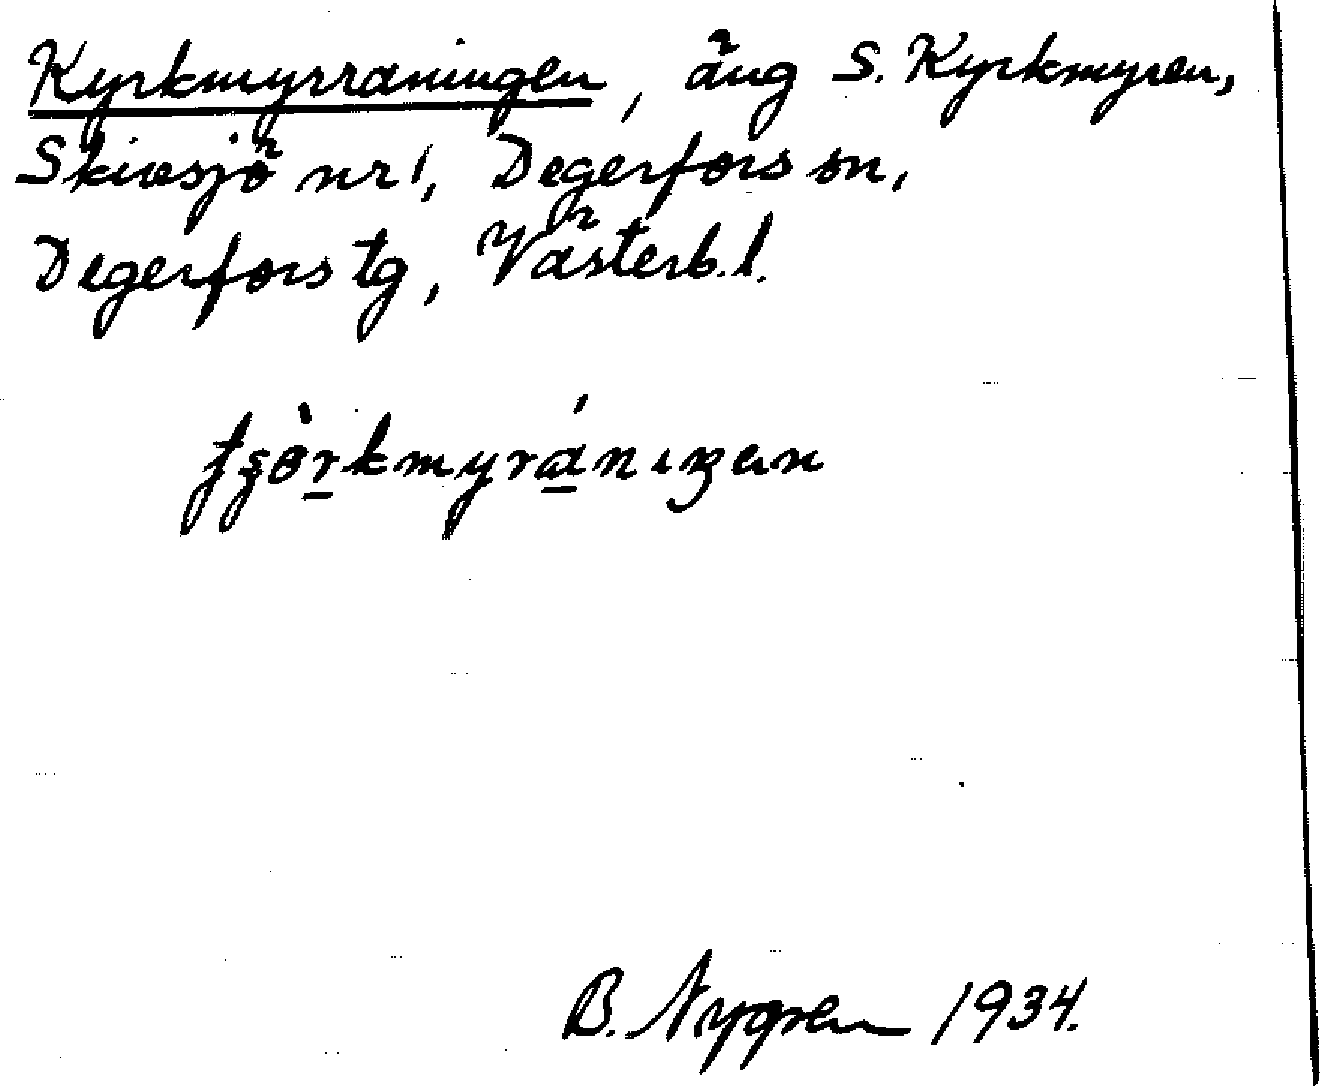 Kyrkmyrraningen, äng S. Kyrkmyren,
Skivsjö nr 1, Degerfors sn,
Degerfors tg, Västerb. l.
B. Nygren 1934.